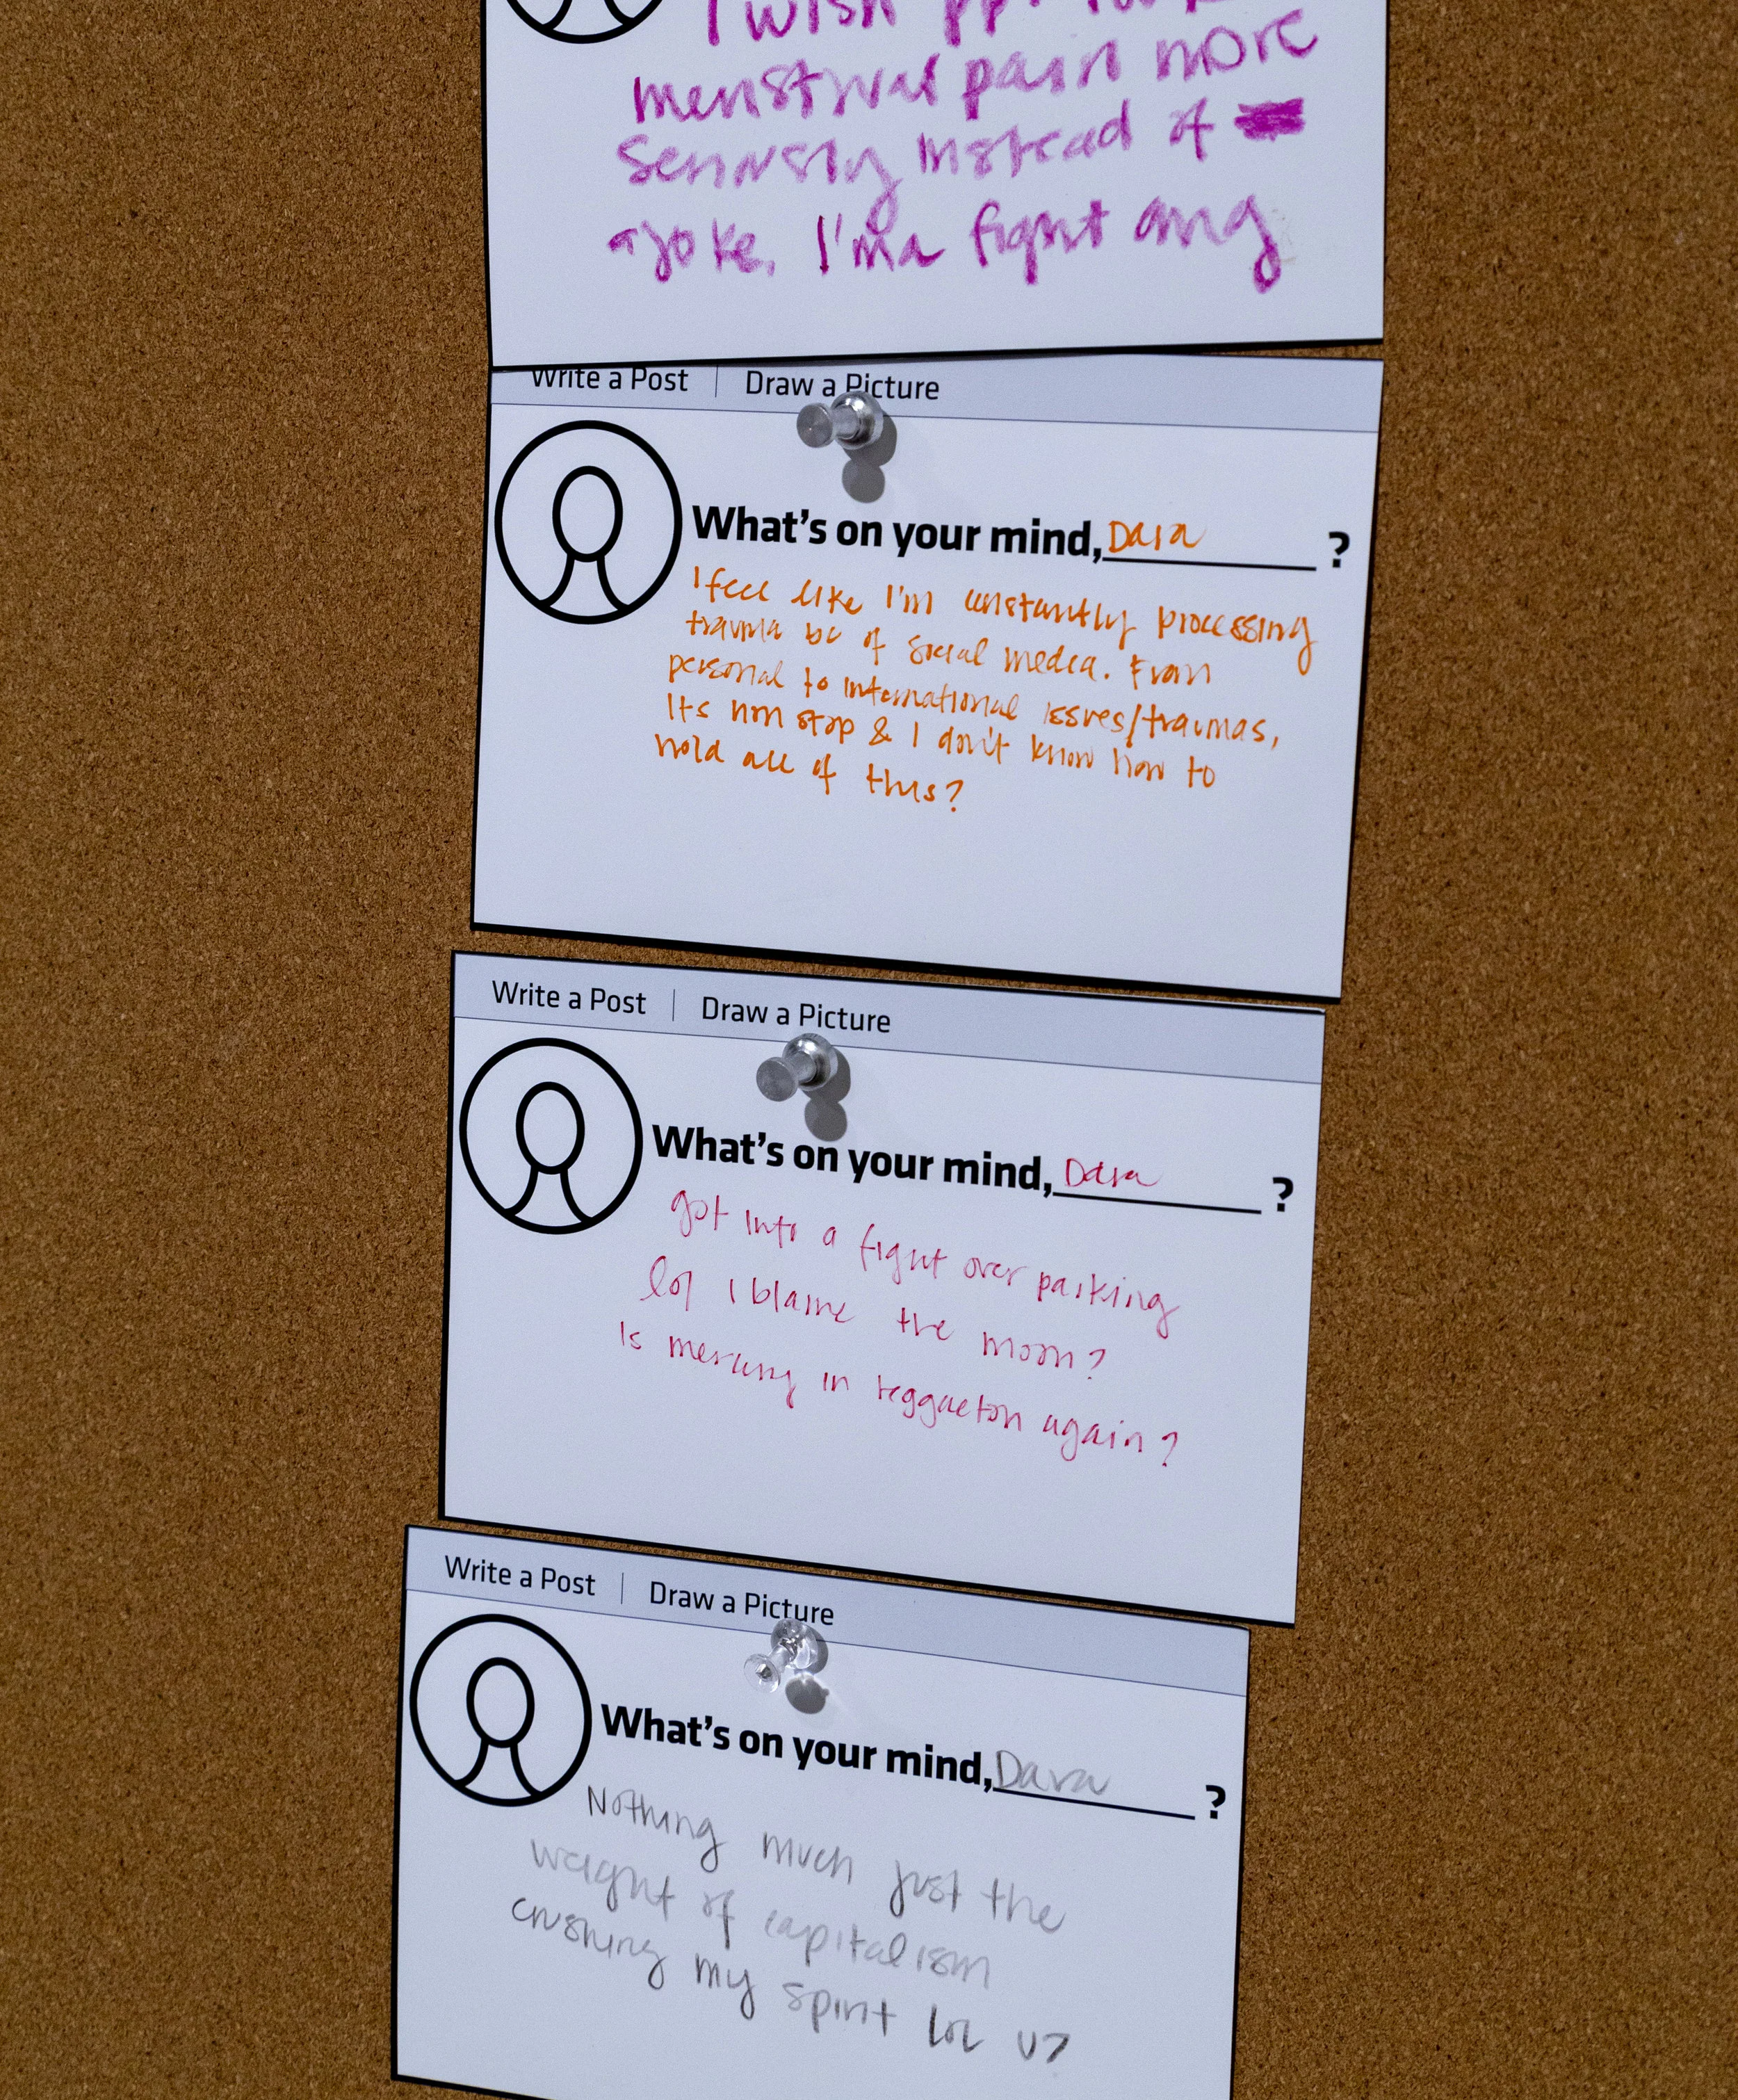 I wish ppl took
menstrual pain more
seriously instead of
a joke. I'ma fight any
Write a Post | Draw a Picture
What's on your mind, Dara ?
I feel like I'm constantly processing
trauma bc of social media. From
personal to international issues/traumas,
Its non stop & I don't know how to
hold all of this?
Write a Post | Draw a Picture
What's on your mind, Dara ?
got into a fight over parking
lol I blame the moon?
Is mercury in reggaeton again?
Write a Post | Draw a Picture
What's on your mind, Dara ?
Nothing much just the
weight of capitalism
crushing my spirit lol u?